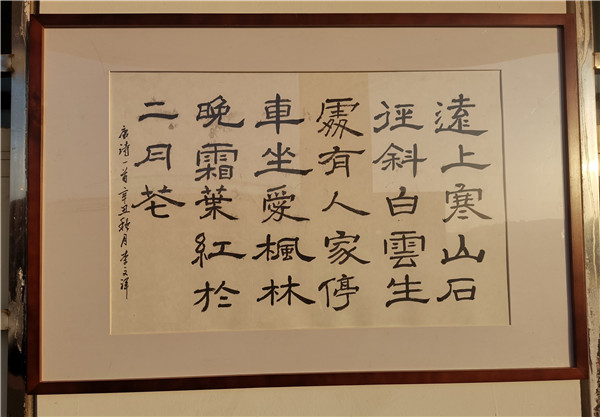 遠上寒山石
徑斜白雲生
處有人家停
車坐愛楓林
晚霜葉紅於
二月花
唐诗一首辛丑秋月李文祥